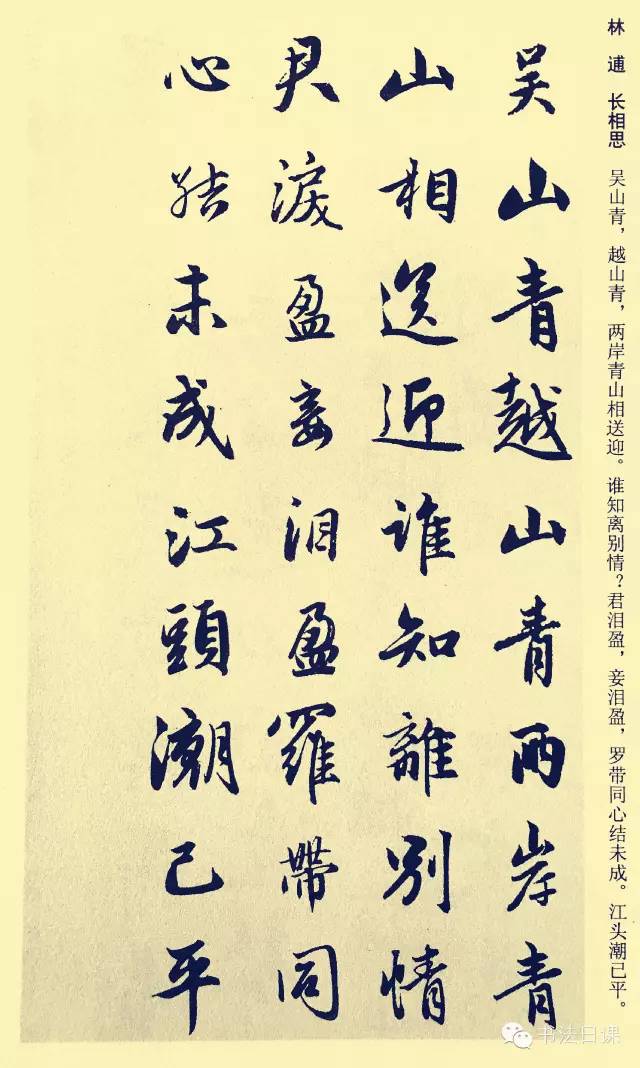 林逋 长相思 吴山青，越山青，两岸青山相送迎。谁知离别情？君泪盈，妾泪盈，罗带同心结未成。江头潮已平。
吴山青越山青两岸青
山相送迎谁知離别情
君淚盈妾泪盈羅帶同
心结未成江頭潮已平
书法日课